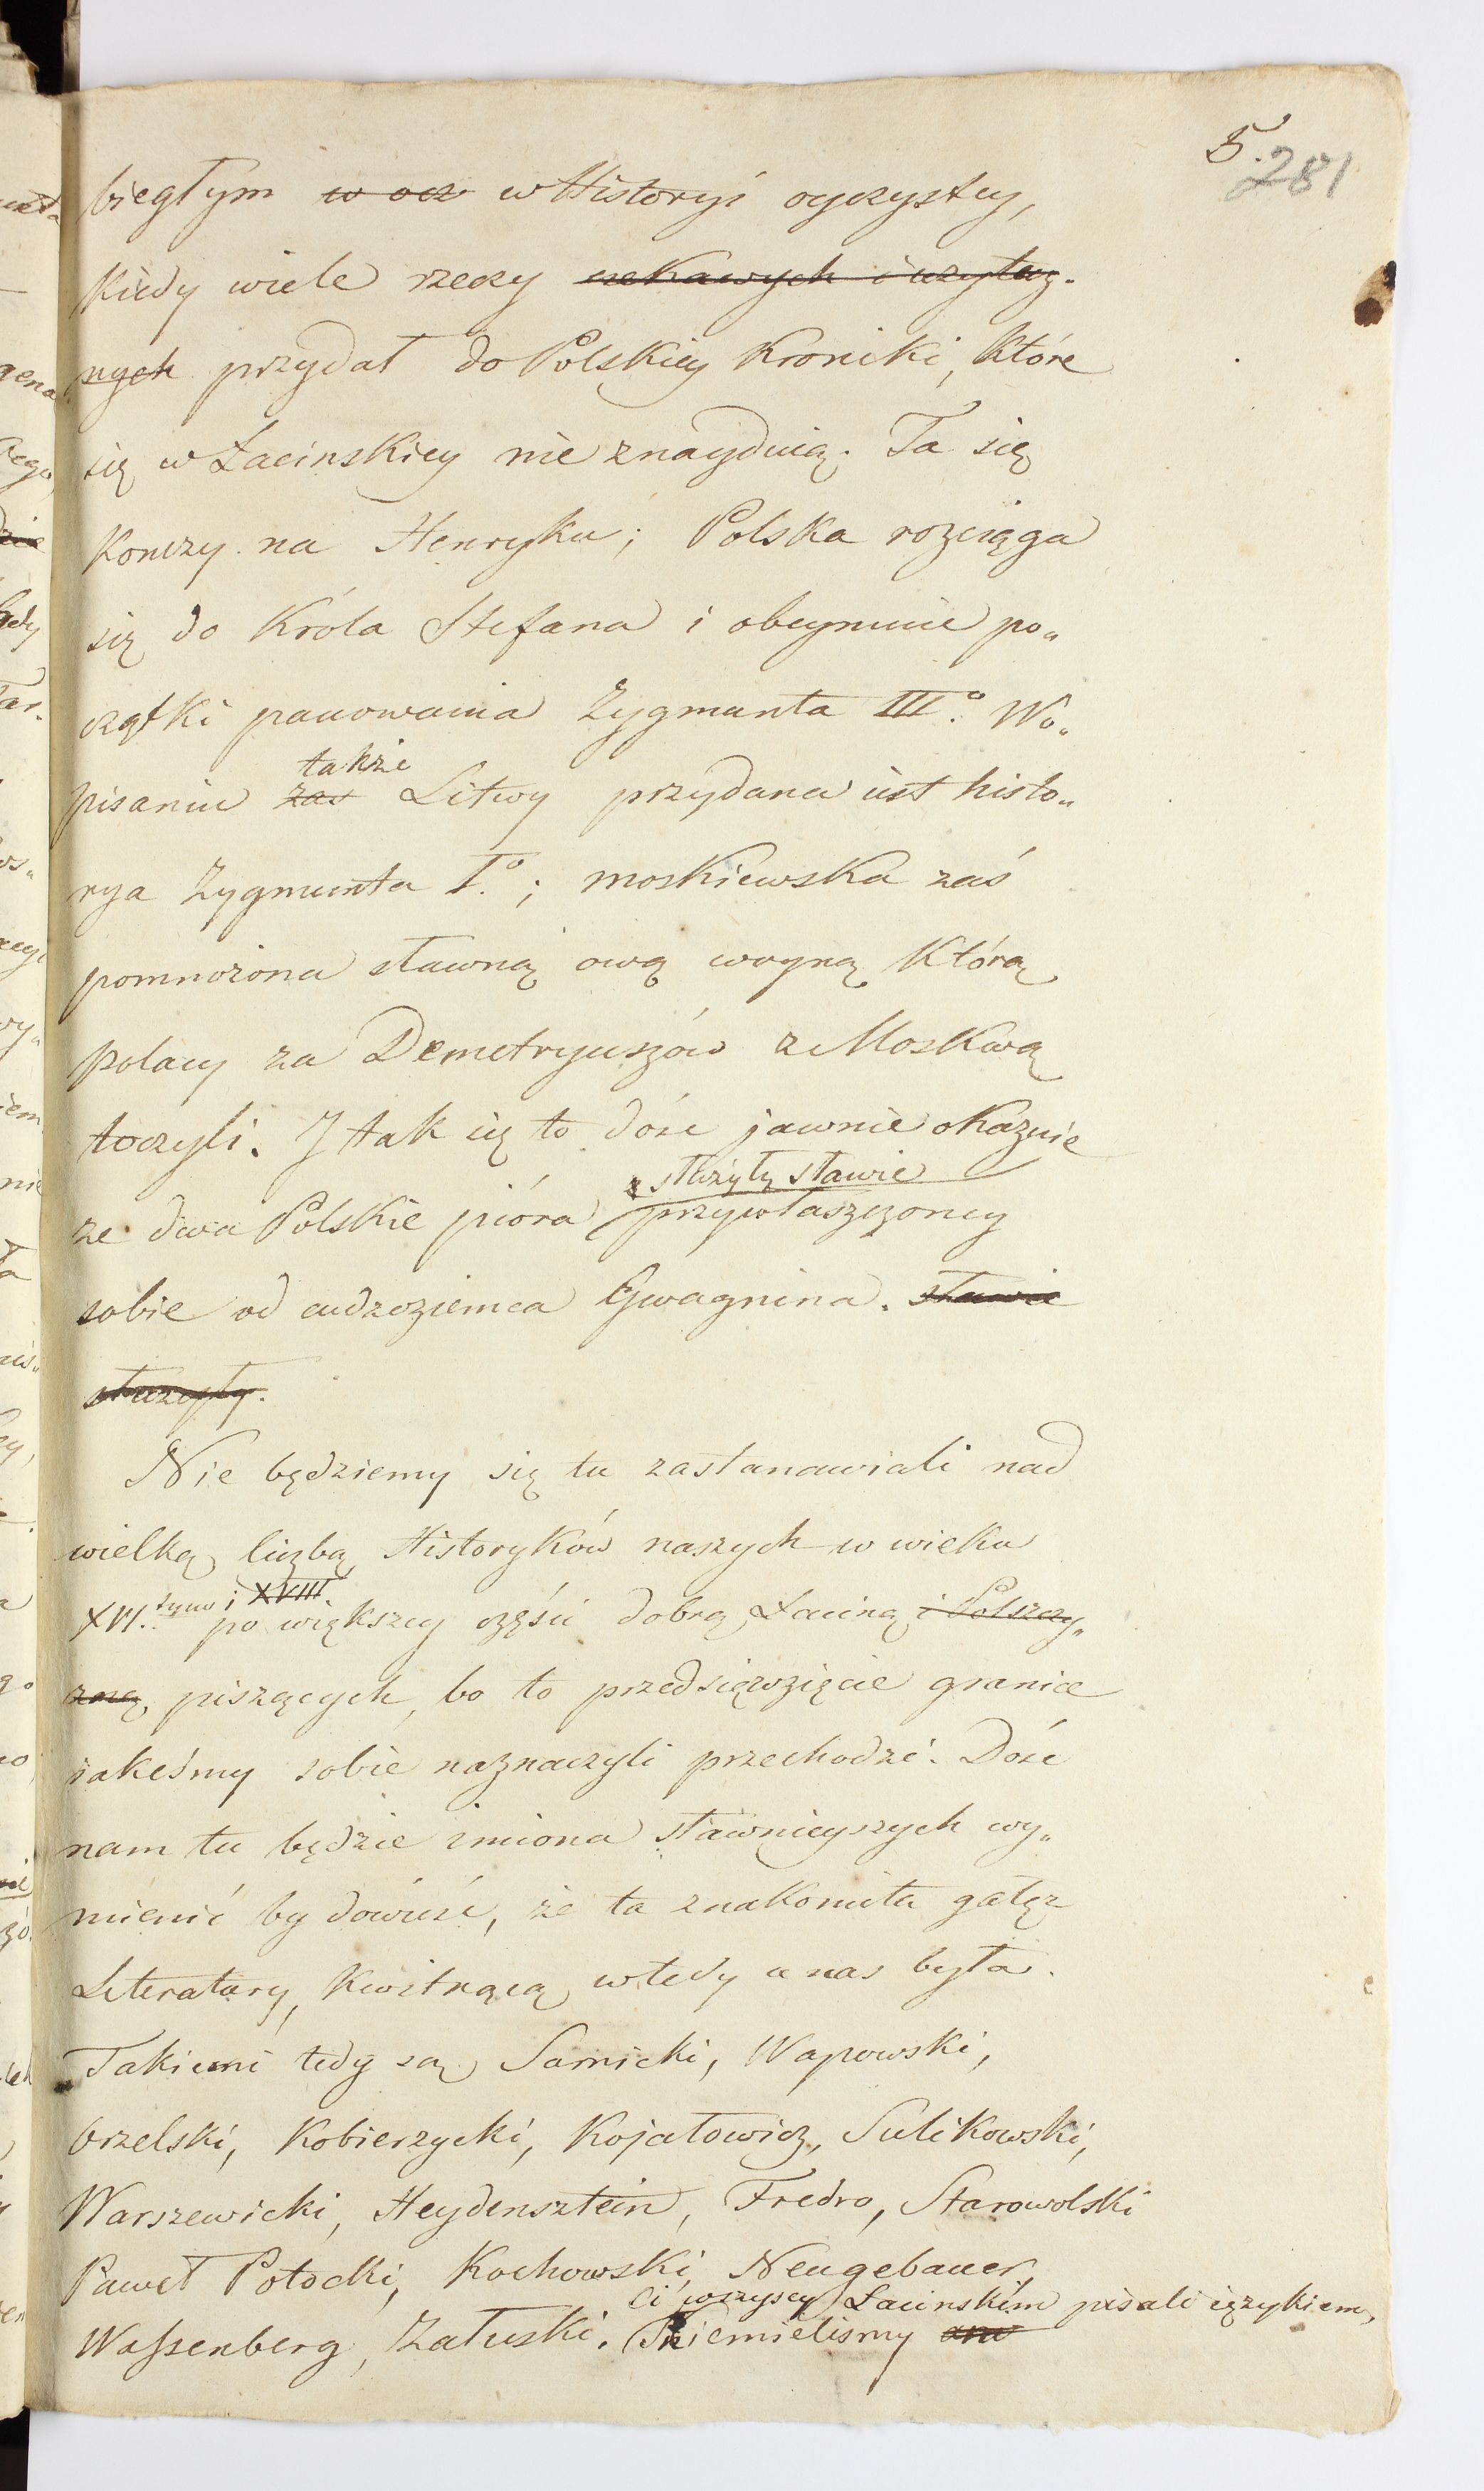 5. 281
biegłym w ocz w Historyi oyczystey,
kiedy wiele rzeczy ciekawych i użytecz-
nych przydał do Polskiey Kroniki, które
się w Łacinskiey nie znayduią. Ta się
konczy na Henryku; Polska rozciąga
się do Króla Stefana i obeymuie po„
czątki panowania Zygmunta III.° W o„
pisaniu zas także Litwy przydana iest histo„
rya Zygmunta I.°; moskiewska zaś
pomnożona sławną ową woyną którą
polacy za Demetryuszów z Moskwą
toczyli. I tak się to dość jawnie okazuie
że dwa Polskie pióra służyły sławie przywłaszczoney
sobie od cudzoziemca Gwagnina. sławie
służyły.
Nie będziemy się tu zastanawiali nad
wielką liczbą Historyków naszych w wieku
XVI.tym i XVIII. po większey części dobrą Łaciną i Polszczy„
zną piszących, bo to przedsięwzięcie granice
iakeśmy sobie naznaczyli przechodzi. Dość
nam tu będzie imiona sławnieyszych wy„
mienić by dowieść, że ta znakomita gałęz
Literatury, kwitnącą wtedy u nas była.
Takiemi tedy są Sarnicki, Wapowski,
Orzelski, Kobierzycki, Kojałowicz, Sulikowski,
Warszewicki, Heydensztein, Fredro, Starowolski
Paweł Potocki, Kochowski, Neugebauer,
Ci wszyscy Łacinskim pisali ięzykiem,
Wassenberg, Załuski. Niemielismy